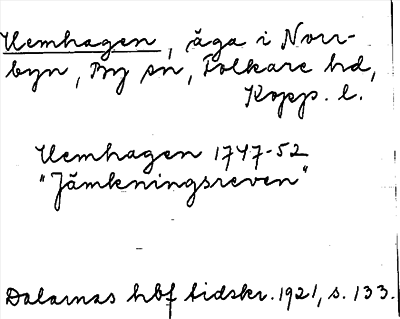 Hemhagen, äga i Norr-
byn, By sn, Folkare hd,
Kopp. l.
Hemhagen 1747-52
"Jämkningsreven"
Dalarnas hbf tidskr. 1921, s. 133.